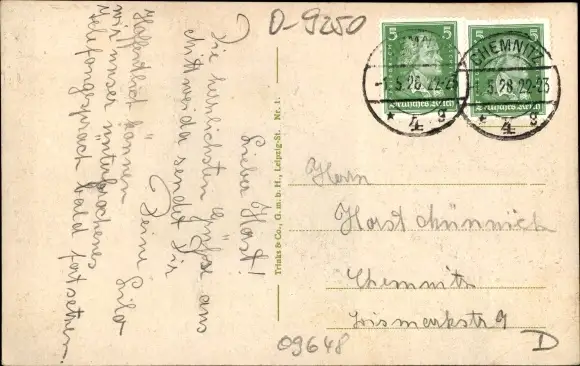 D-9250
Lieber Horst!
Die herzlichsten Grüße aus
Mittweida sendet Dir
Deine Hilde
Hoffentlich können
wir unser unterbrochenes
Telefongespräch bald fortsetzen.
Trinks & Co., G. m. b. H., Leipzig-St. Nr. 1:
5
Deutsches Reich
5
Deutsches Reich
CHEMNITZ
-1.5.28.22-23
* 4 g
CHEMNITZ
5.28.22-23
* 4 g
Herrn
Horst Münnich
Chemnitz
Bismarkstr 9
09648
D